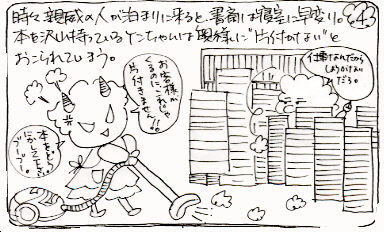 時々親戚の人が泊まりに来ると、書斎は寝室に早変り。
本を沢山持っているケンちゃんは奥様に"片付かない"と
おこられているよう。
お客様が
くるのに、これじゃ
片付きません!!
本をどう
にかして下さい
プープー。
仕事なんだから
しょうがない
だろ。